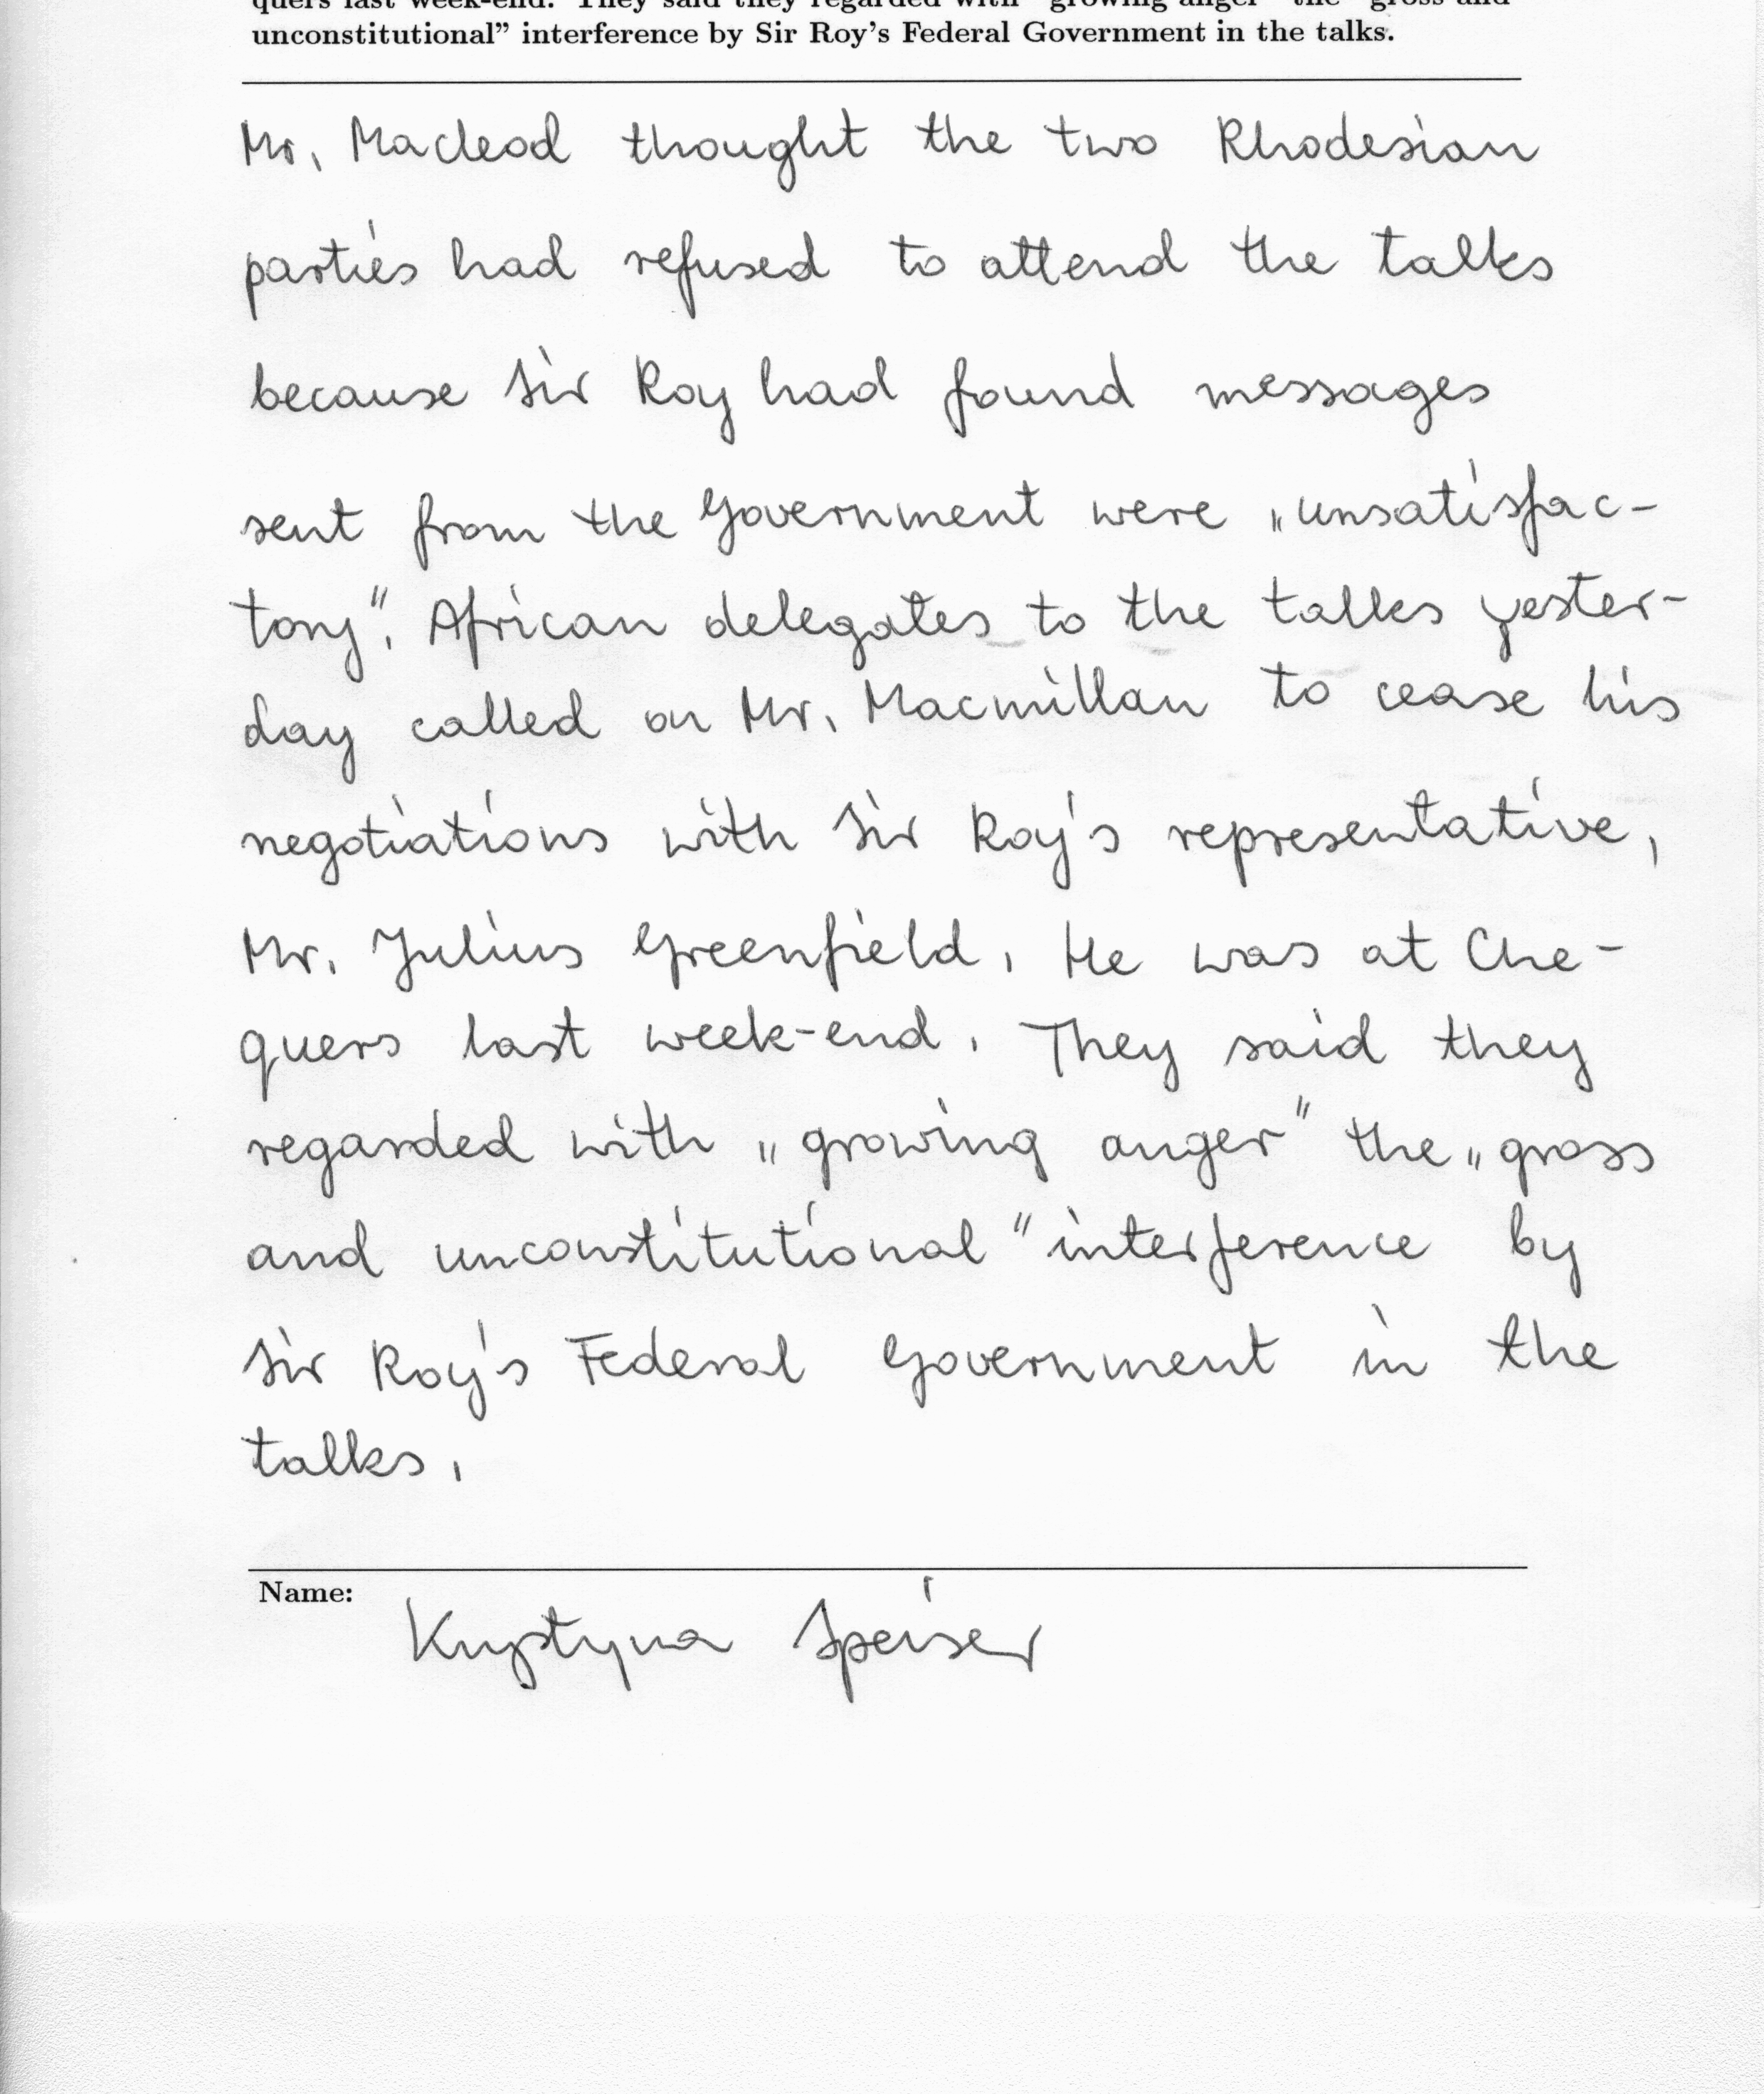 quers last week-end. They said they regarded with "growing anger" the "gross and
unconstitutional” interference by Sir Roy’s Federal Government in the talks.
Mr. Macleod thought the two Rhodesian
parties had refused to attend the talks
because Sir Roy had found messages
sent from the Government were „unsatisfac-
tory". African delegates to the talks yester-
day called on Mr. Macmillan to cease his
negotiations with Sir Roy's representative,
Mr. Julius Greenfield. He was at Che-
quers last week-end. They said they
regarded with „growing anger" the „gross
and unconstitutional" interference by
Sir Roy's Federal Government in the
talks.
Name: Krystyna Speiser